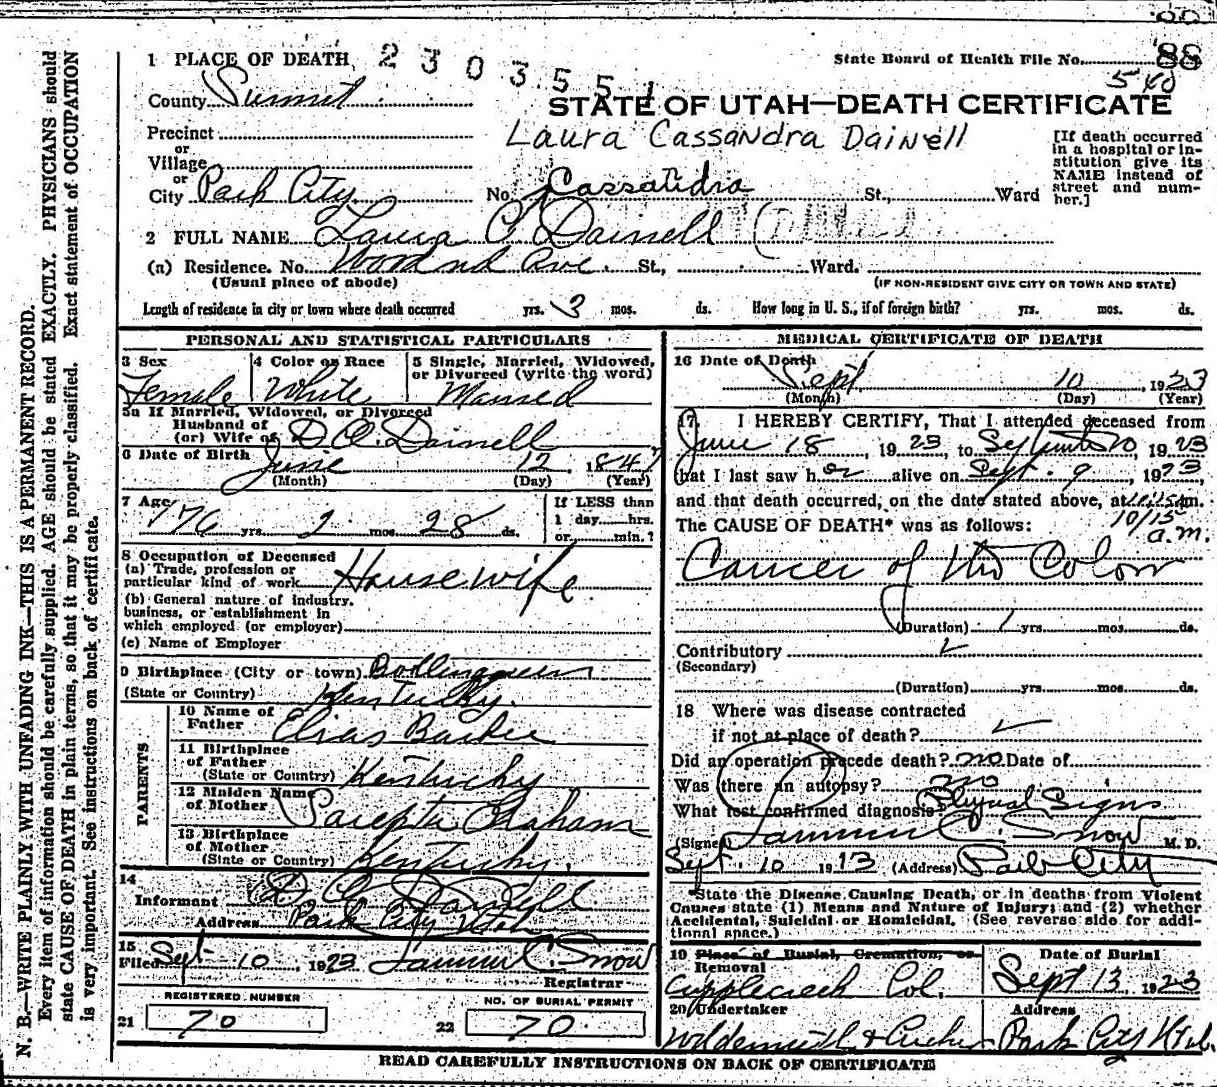 88
1 PLACE OF DEATH 2 3 0 3 5 5 1
State Board of Health File No. 88
540
County Summit
STATE OF UTAH—DEATH CERTIFICATE
Precinct
Laura Cassandra Dainell
or
Village
or
City Park City No. Cassandra St., Ward
[If death occurred
in a hospital or in-
stitution give its
NAME instead of
street and num-
ber.]
2 FULL NAME Laura C Dainell
(a) Residence. No. Woodnd Ave. St., Ward.
(Usual place of abode) (IF NON-RESIDENT GIVE CITY OR TOWN AND STATE)
Length of residence in city or town where death occurred yrs. 3 mos. ds. How long in U. S., if of foreign birth? yrs. mos. ds.
PERSONAL AND STATISTICAL PARTICULARS
3 Sex 4 Color or Race 5 Single, Married, Widowed,
or Divorced (write the word)
Female White Married
5a If Married, Widowed, or Divorced
Husband of
(or) Wife of D. C. Dainell
6 Date of Birth June 12, 1847
(Month) (Day) (Year)
7 Age 76 yrs. 2 mos. 28 ds.
If LESS than
1 day hrs.
or min.?
8 Occupation of Deceased
(a) Trade, profession or
particular kind of work Housewife
(b) General nature of industry,
business, or establishment in
which employed (or employer)
(c) Name of Employer
9 Birthplace (City or town)
(State or Country) Kentucky.
PARENTS
10 Name of
Father Elias Barbee
11 Birthplace
of Father
(State or Country) Kentucky
12 Maiden Name
of Mother Sarepta Graham
13 Birthplace
of Mother
(State or Country) Kentucky.
14
Informant D. C. Darnell
Address Park City Utah
15
Filed Sept 10, 1923 C. Snow
Registrar
REGISTERED NUMBER NO. OF BURIAL PERMIT
21 70 22 70
MEDICAL CERTIFICATE OF DEATH
16 Date of Death
Sept 10, 1923
(Month) (Day) (Year)
17 I HEREBY CERTIFY, That I attended deceased from
June 18, 1923, to September 10, 1923
that I last saw her alive on Sept. 9, 1923,
and that death occurred, on the date stated above, at 10:15 am.
The CAUSE OF DEATH* was as follows: 10/15
a.m.
Cancer of the Colon
(Duration) 1 yrs. mos. ds.
Contributory
(Secondary)
(Duration) yrs. mos. ds.
18 Where was disease contracted
if not at place of death?
Did an operation precede death? no Date of
Was there an autopsy? no
What test confirmed diagnosis? Physical Signs
(Signed) C. Snow M. D.
Sept. 10 1923 (Address) Park City
*State the Disease Causing Death, or in deaths from Violent
Causes state (1) Means and Nature of Injury; and (2) whether
Accidental, Suicidal or Homicidal. (See reverse side for addi-
tional space.)
19 Place of Burial, Cremation, or
Removal Date of Burial
Cripplecreek Col. Sept 13, 1923
20 Undertaker Address
Park City Utah.
READ CAREFULLY INSTRUCTIONS ON BACK OF CERTIFICATE
N. B.—WRITE PLAINLY WITH UNFADING INK—THIS IS A PERMANENT RECORD.
Every item of information should be carefully supplied. AGE should be stated EXACTLY. PHYSICIANS should
state CAUSE OF DEATH in plain terms, so that it may be properly classified. Exact statement of OCCUPATION
is very important. See instructions on back of certificate.